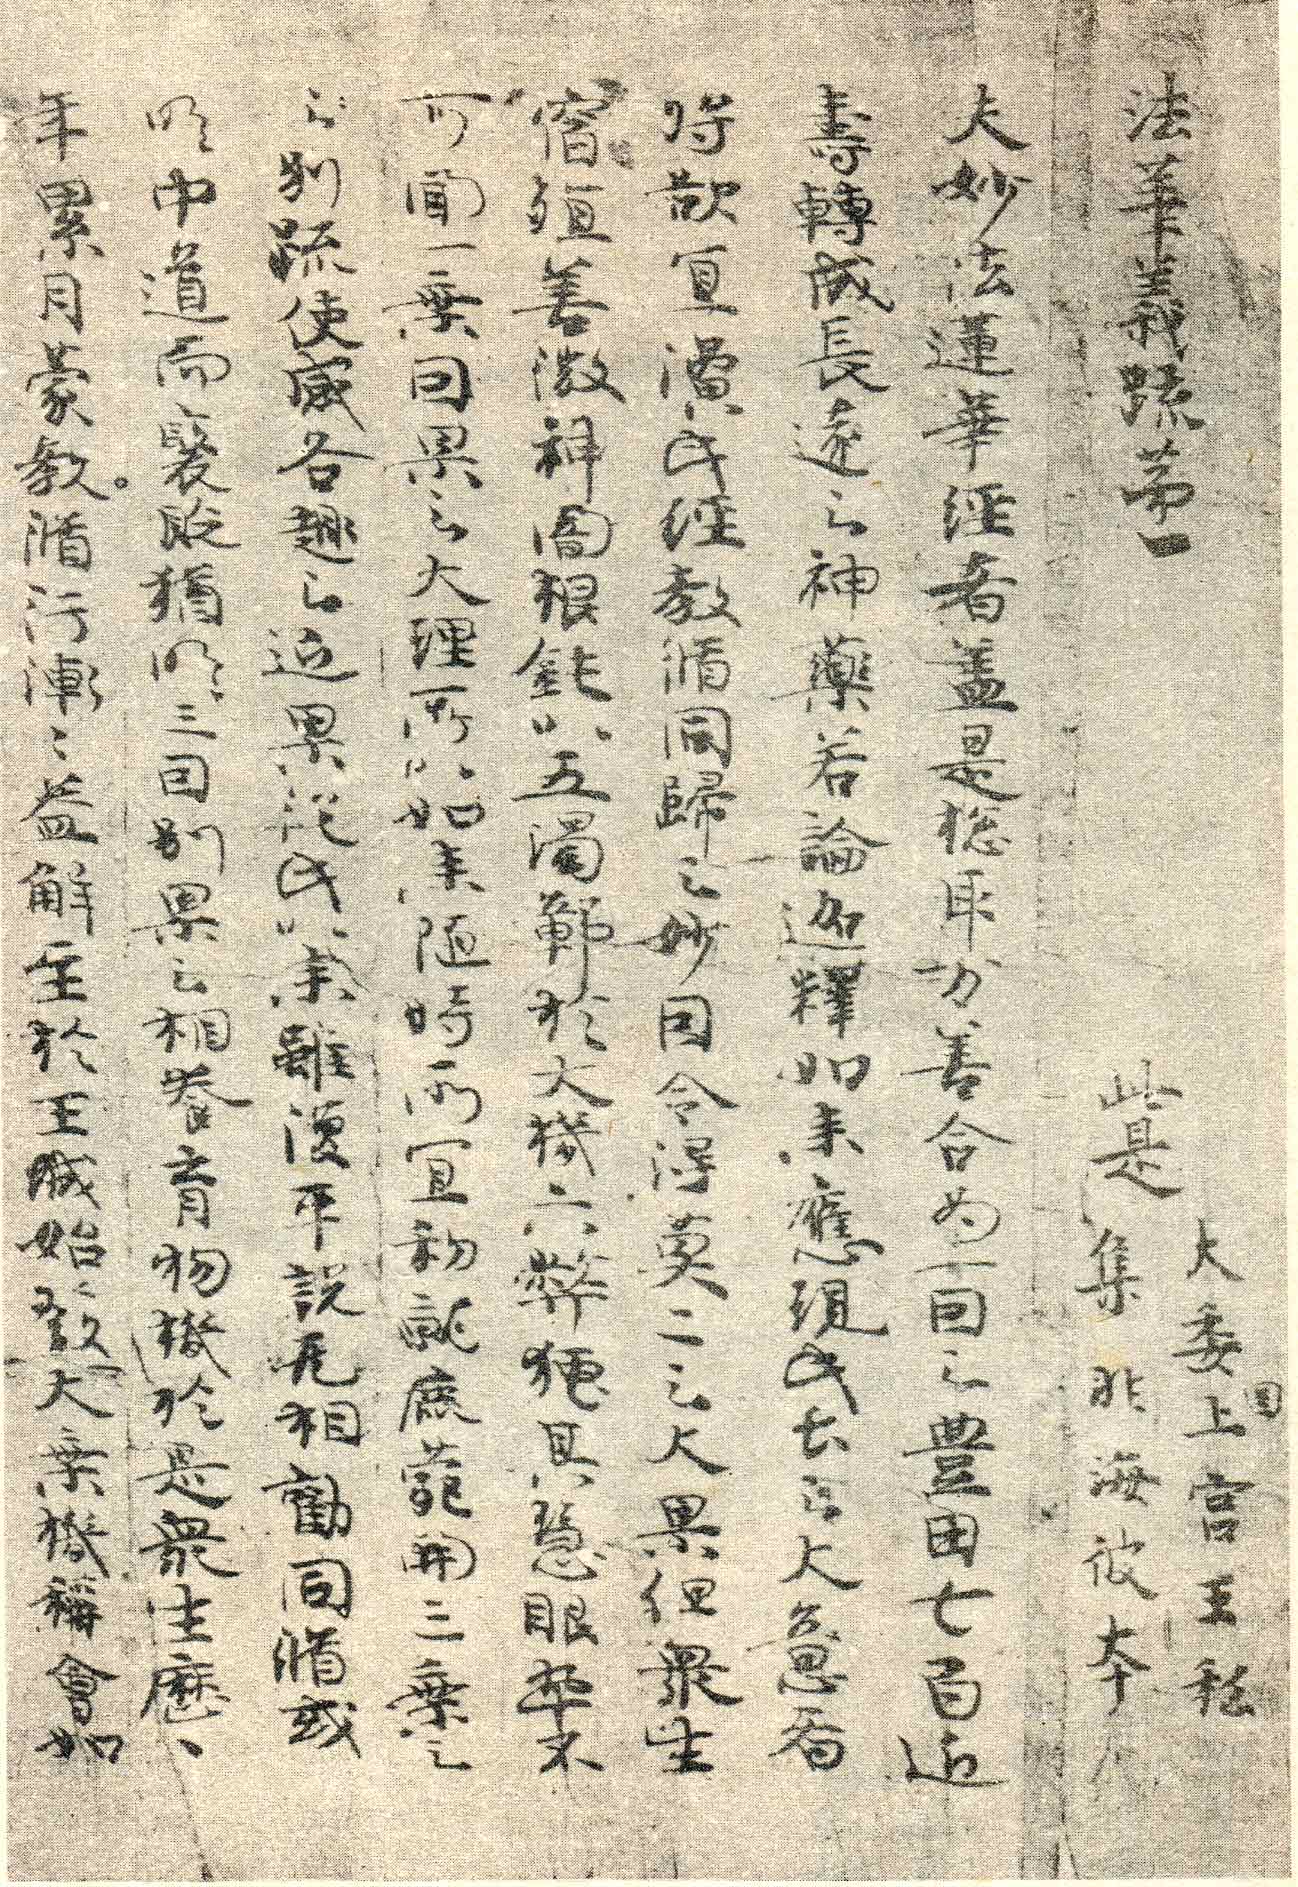 法華義疏第一
此是
大委国上宮王私
集非海彼本
夫妙法蓮華経者盖是惣取万善合為一因之豊田七百近
壽轉成長遠之神藥若論迦釋如来應現此土之大意者
将欲宣演此経教脩同歸之妙因令得莫二之大果但衆生
宿殖善微神闇根鈍以五濁鄣於大機六弊掩其慧眼卒不
可聞一乗因果之大理所以如来随時所宜初就鹿菀開三乗之
之別疏使感各趣之近果従此以来雖復平説无相勸同脩或
明中道而褒貶猶明三因別果之相養育物機於是衆生歴
年累月蒙教脩行漸〻益解至於王城始〻發大乗機稱會如